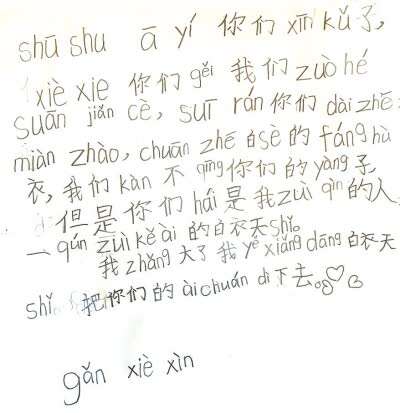 shū shu ā yí 你们 xīn kǔ 了,
xiè xie 你们 gěi 我们 zuò hé
suān jiǎn cè, suī rán 你们 dài zhē
miàn zhào, chuān zhē 白sè 的 fáng hù
衣, 我们 kàn 不 qīng 你们的 yàng 子,
但是你们 hái 是我 zuì qīn 的人
一 qún zuì kě ài 的白衣天 shǐ。
我 zhǎng 大了我 yě xiǎng dāng 白衣天
shǐ 把你们的 ài chuán dì 下去。
gǎn xiè xìn